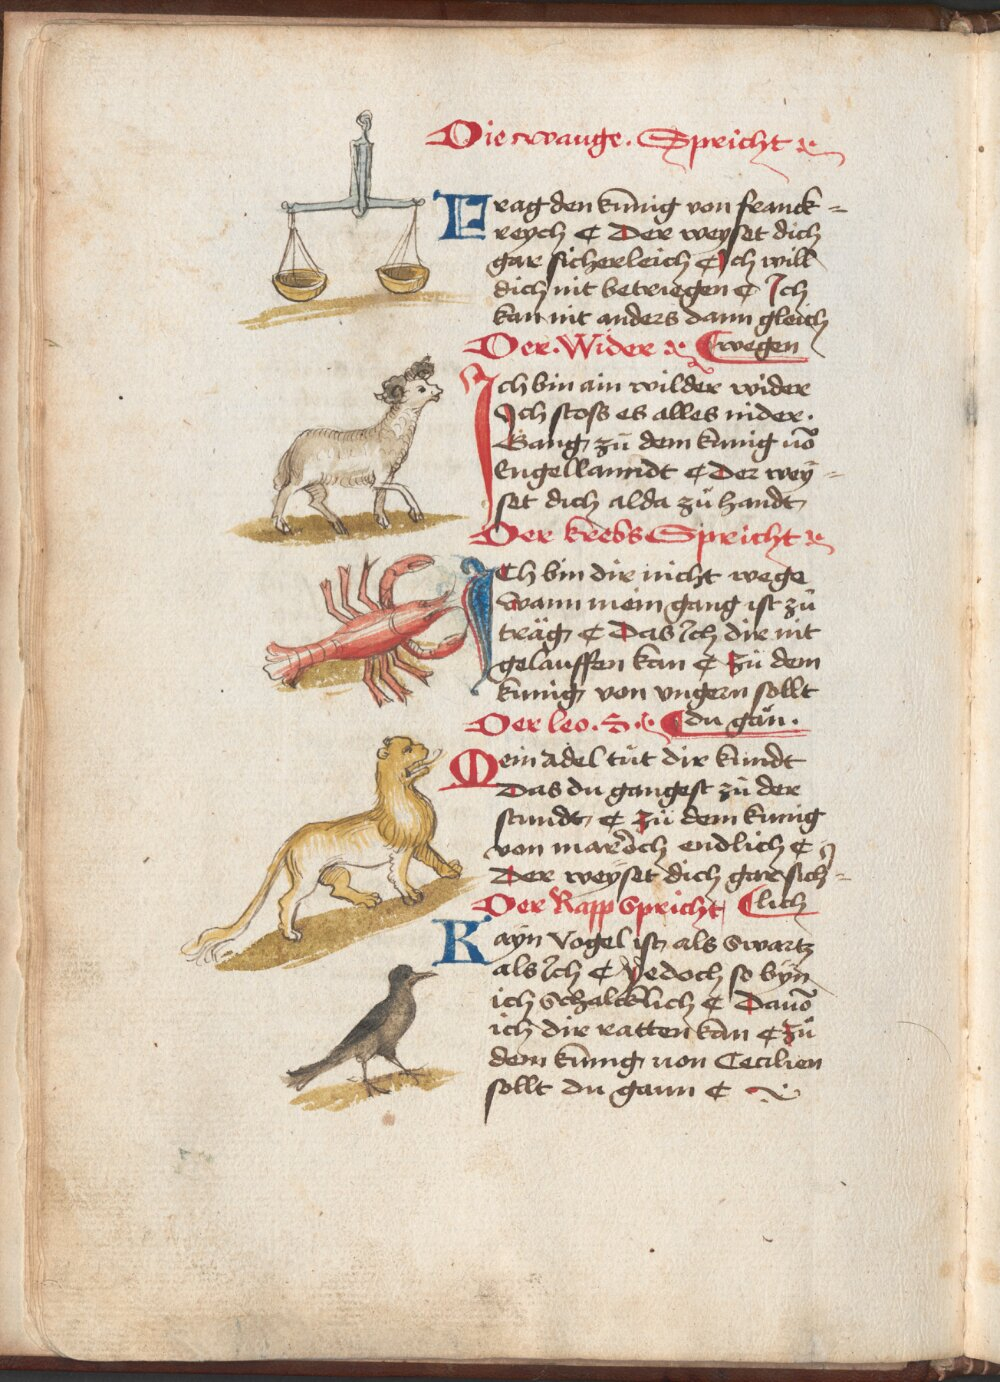 Die wauge . Spricht
Frag den künig von franck=
reych ¶ Der weyset dich
gar sicherleich ¶ Ich will
dich nit betriegen ¶ Ich
kan nit anders dann gleich
Der . Wider ¶ wegen
Ich bin ain wilder wider
Ich stoss es alles nider .
Gang zů dem künig vō
Engellanndt ¶ Der wey=
set dich alda zů handt
Der krebs Spricht
Ich bin dir nicht wege
wann mein gang ist zů
träg ¶ Das Ich dir nit
gelauffen kan ¶ zů dem
künig von vngern sollt
Der leo . S . ¶ du gän .
Mein adel tůt dir kundt
Das du gangest zů der
stundt ¶ zů dem künig
von maroch endlich ¶
Der weyset dich gar sich=
Der Rapp Spricht ¶ lich
Kayn Vogel ist als Swartz
als Ich ¶ yedoch so byn
ich Schalcklich ¶ Dauō
ich dir ratten kan ¶ zů
dem künig von Cecilien
sollt du gann ¶